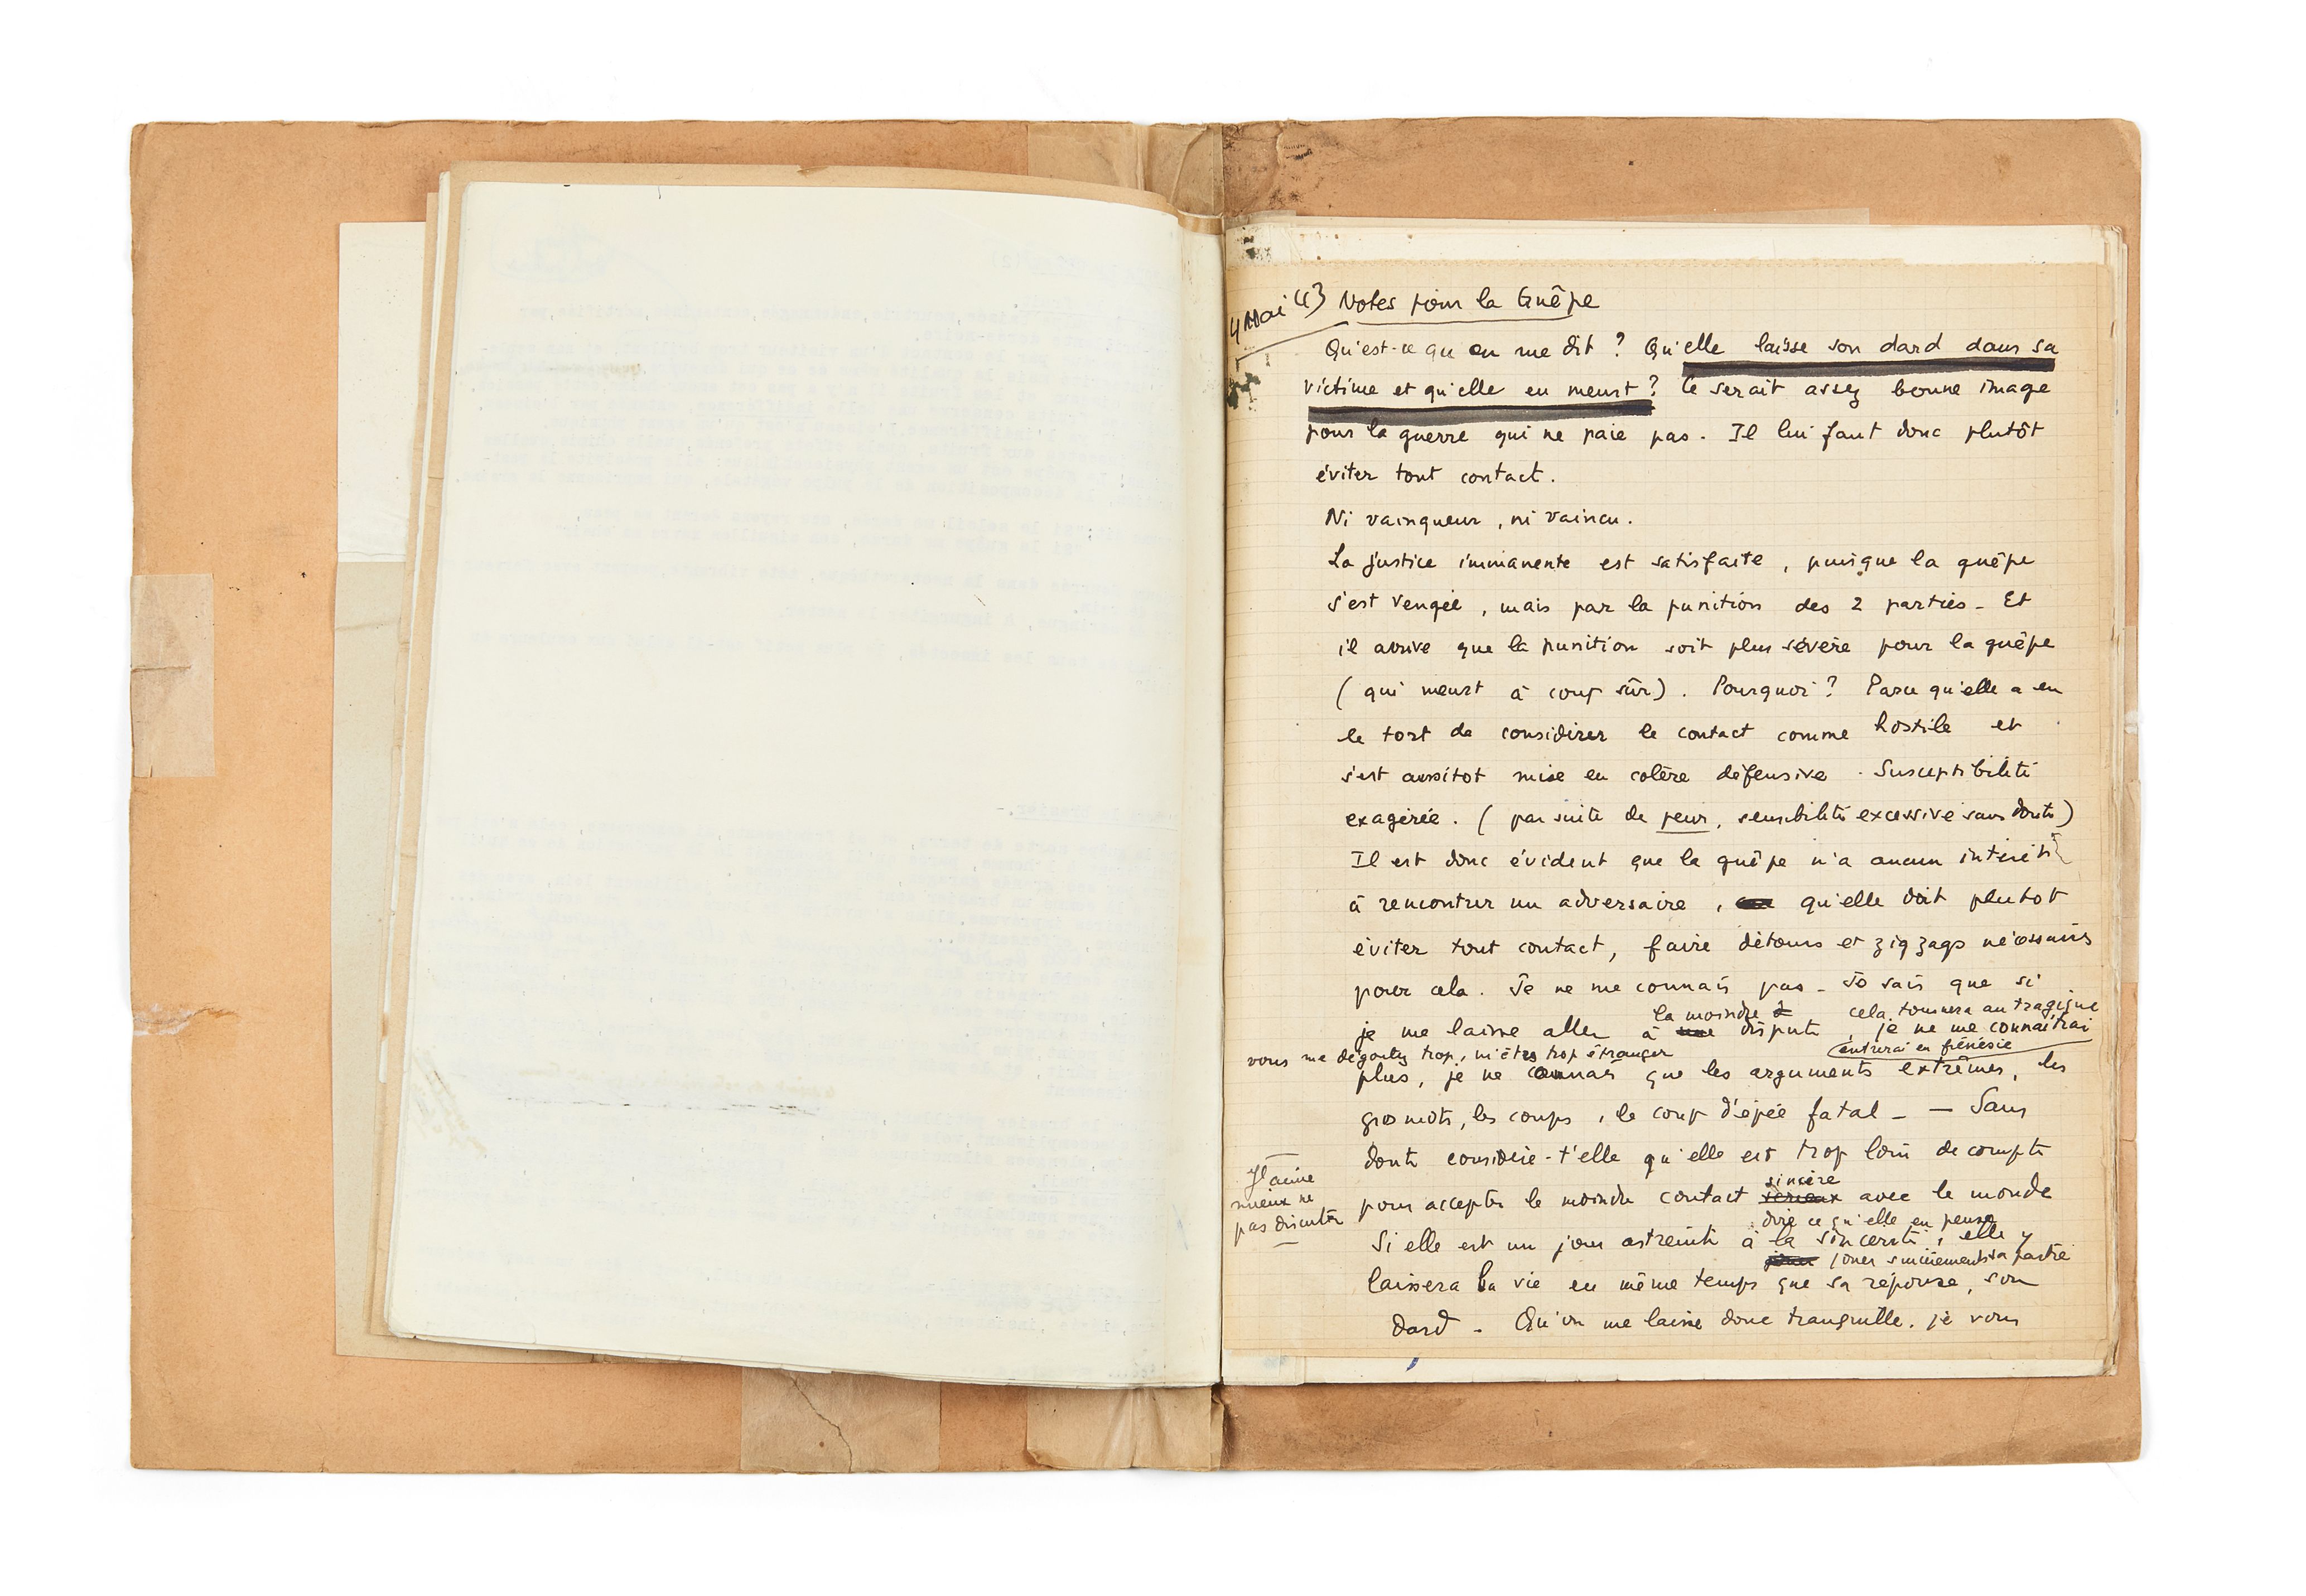 4 Mai 43 Notes pour la Guêpe
Qu'est-ce qu'on me dit ? Qu'elle laisse son dard dans sa
victime et qu'elle en meurt ? Ce serait assez bonne image
pour la guerre qui ne paie pas. Il lui faut donc plutôt
éviter tout contact.
Ni vainqueur, ni vaincu.
La justice immanente est satisfaite, puisque la guêpe
s'est vengée, mais par la punition des 2 parties - Et
il arrive que la punition soit plus sévère pour la guêpe
( qui meurt à coup sûr). Pourquoi ? Parce qu'elle a eu
le tort de considérer le contact comme hostile et
s'est aussitot mise en colère défensive. Susceptibilité
exagérée. ( par suite de peur, sensibilité excessive sans doute)
Il est donc évident que la guêpe n'a aucun intérêt
à rencontrer un adversaire, qu'elle doit plutot
éviter tout contact, faire détours et zigzags nécessaires
pour cela. Je ne me connais pas - Je sais que si
la moindre cela tournera au tragique
je me laisse aller à une dispute, je ne me connaîtrai
vous me dégoutez trop, m'êtes trop étranger entrerai en frénésie
plus, je ne connais que les arguments extrêmes, les
gros mots, les coups, le coup d'épée fatal - — Sans
doute considère-t'elle qu'elle est trop loin de compte
J'aime
mieux ne
pas discuter
sincère
pour accepter le moindre contact sérieux avec le monde
dire ce qu'elle en pense
Si elle est un jour astreinte à la sincérité, elle y
jouer jouer sincèrement sa partie
laissera la vie en même temps que sa réponse, son
dard - Qu'on me laisse donc tranquille. je vous